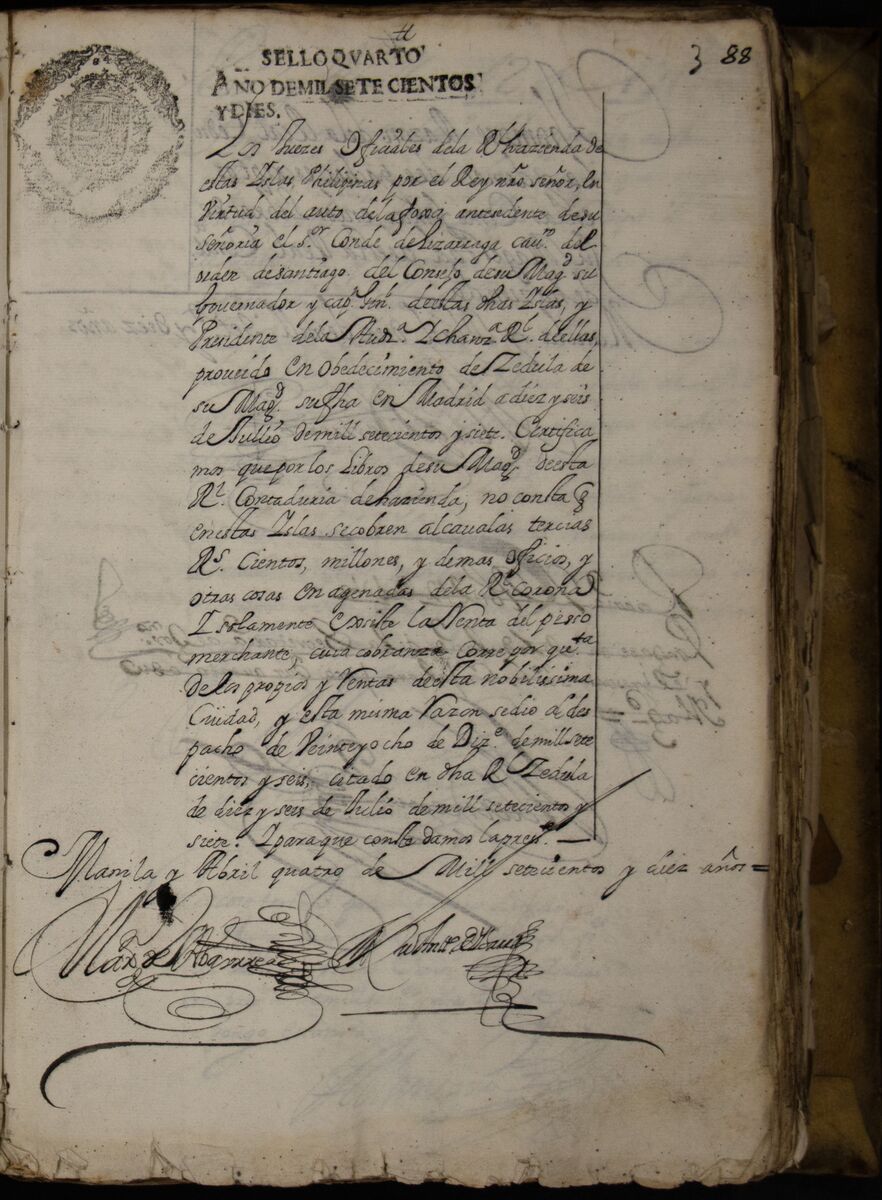 3 88
SELLO QVARTO
AÑO DE MIL SETECIENTOS
Y DIES.
Los Juezes Ofiçiales de la Rl. hazienda de
estas Yslas Philipinas por el Rey nro señor, en
virtud del auto de la foxa antecedente de su
señoria el sor. Conde de Lizarraga cauo. del
orden de santiago del Consejo de su Magd. su
Gouernador y capn. genl. de estas dhas Yslas, y
Presidente de la Auda. Y chanza. Rl. de ellas,
proueido en obedecimiento de Zedula de
su Magd. su fha en Madrid a diez y seis
de Jullio de mill setecientos y siete. Certifica
mos que por los Libros de su Magd. de esta
Rl. Contaduria de hazienda, no consta q
en estas Yslas se cobren alcaualas tercias
Rs. Cientos, millones, y demas oficios, y
otras cosas enagenadas de la Rl. corona
Y solamente existe la Renta del pesso
merchante, cuia cobranza corre por quta
De los propios y Rentas de esta nobilissima
Ciudad, y esta misma razon se dio al des
pacho de Veinte y ocho de Dize. de mill sete
cientos y seis, citado en dha Rl. Zedula
de diez y seis de Julio de mill setecientos y
siete. Y para que conste damos la preste.
Manila y Abril quatro de Mill setecientos y diez años=